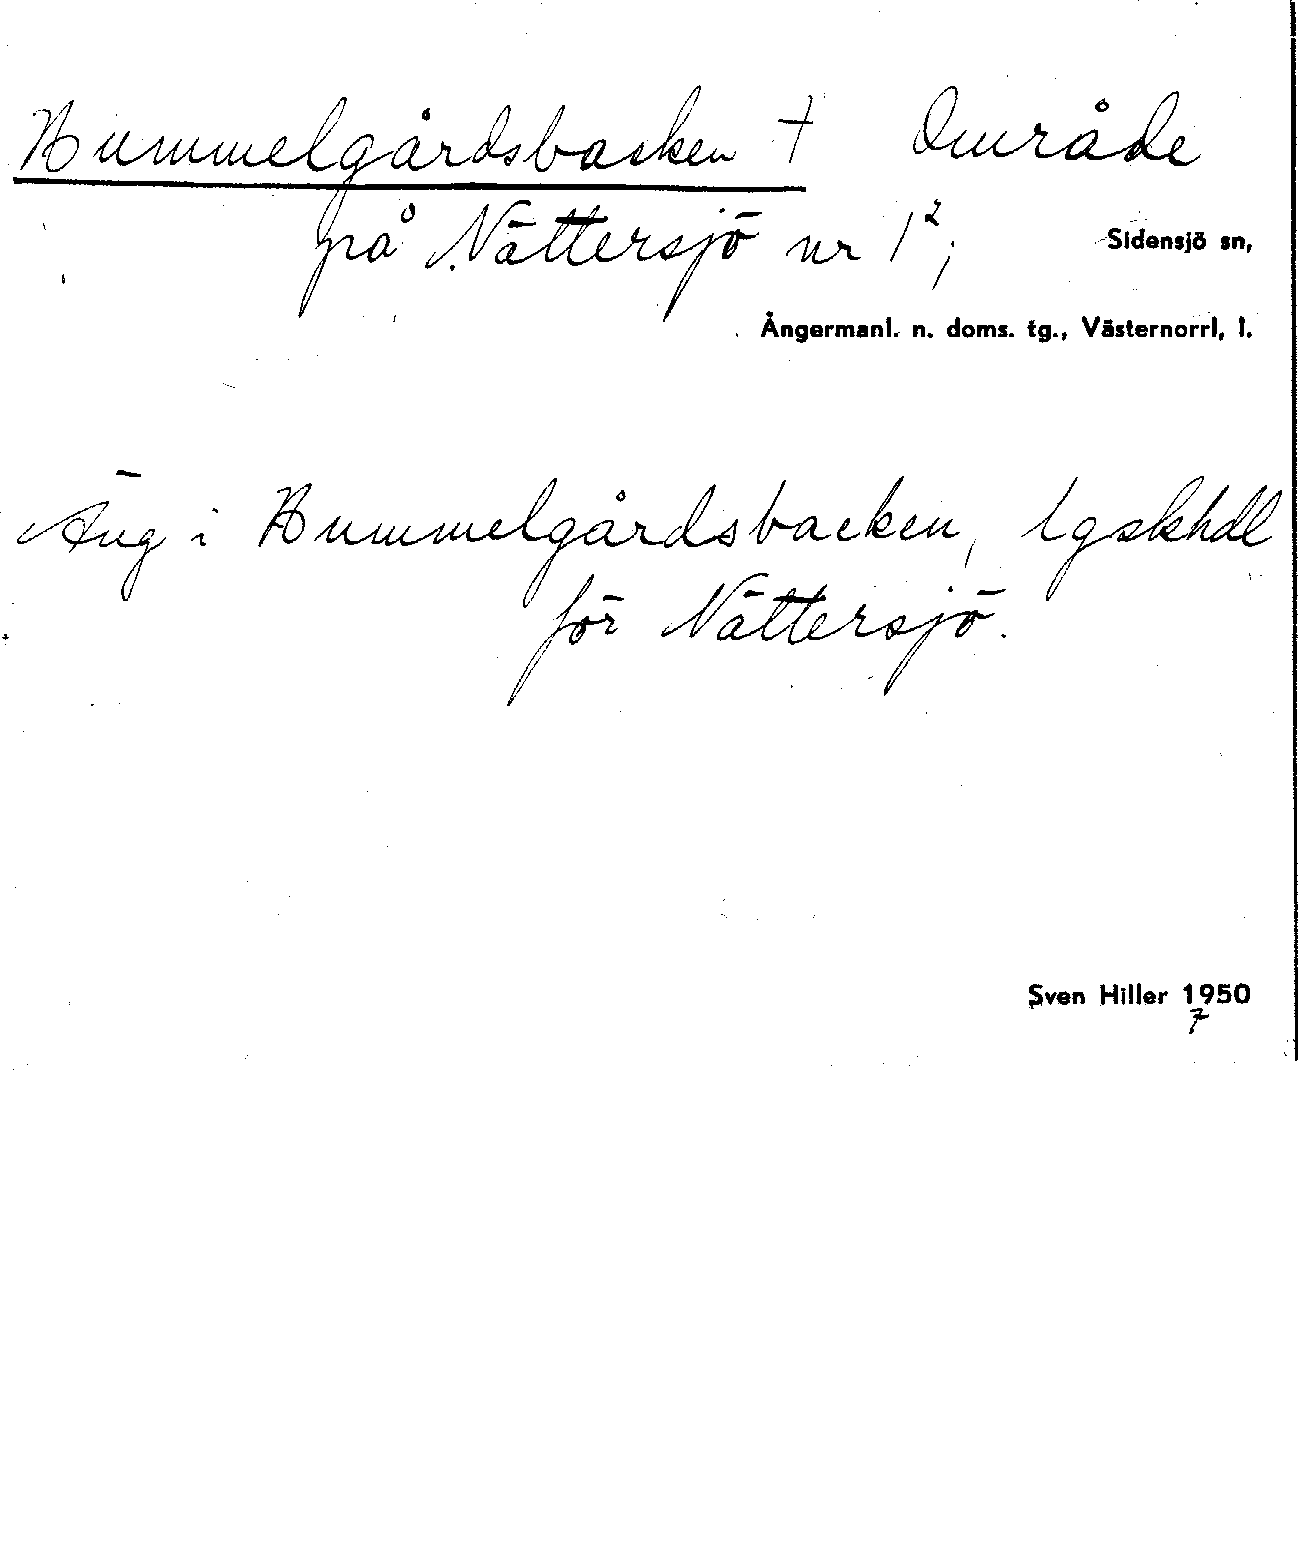 Hummelgårdsbacken † Område
på Nättersjö nr 1²;
Sidensjö sn,
Ångermanl. n. doms. tg., Västernorrl, l.
Äng i Hummelgårdsbacken, lgskhdl
för Nättersjö.
Sven Hiller 1950
7